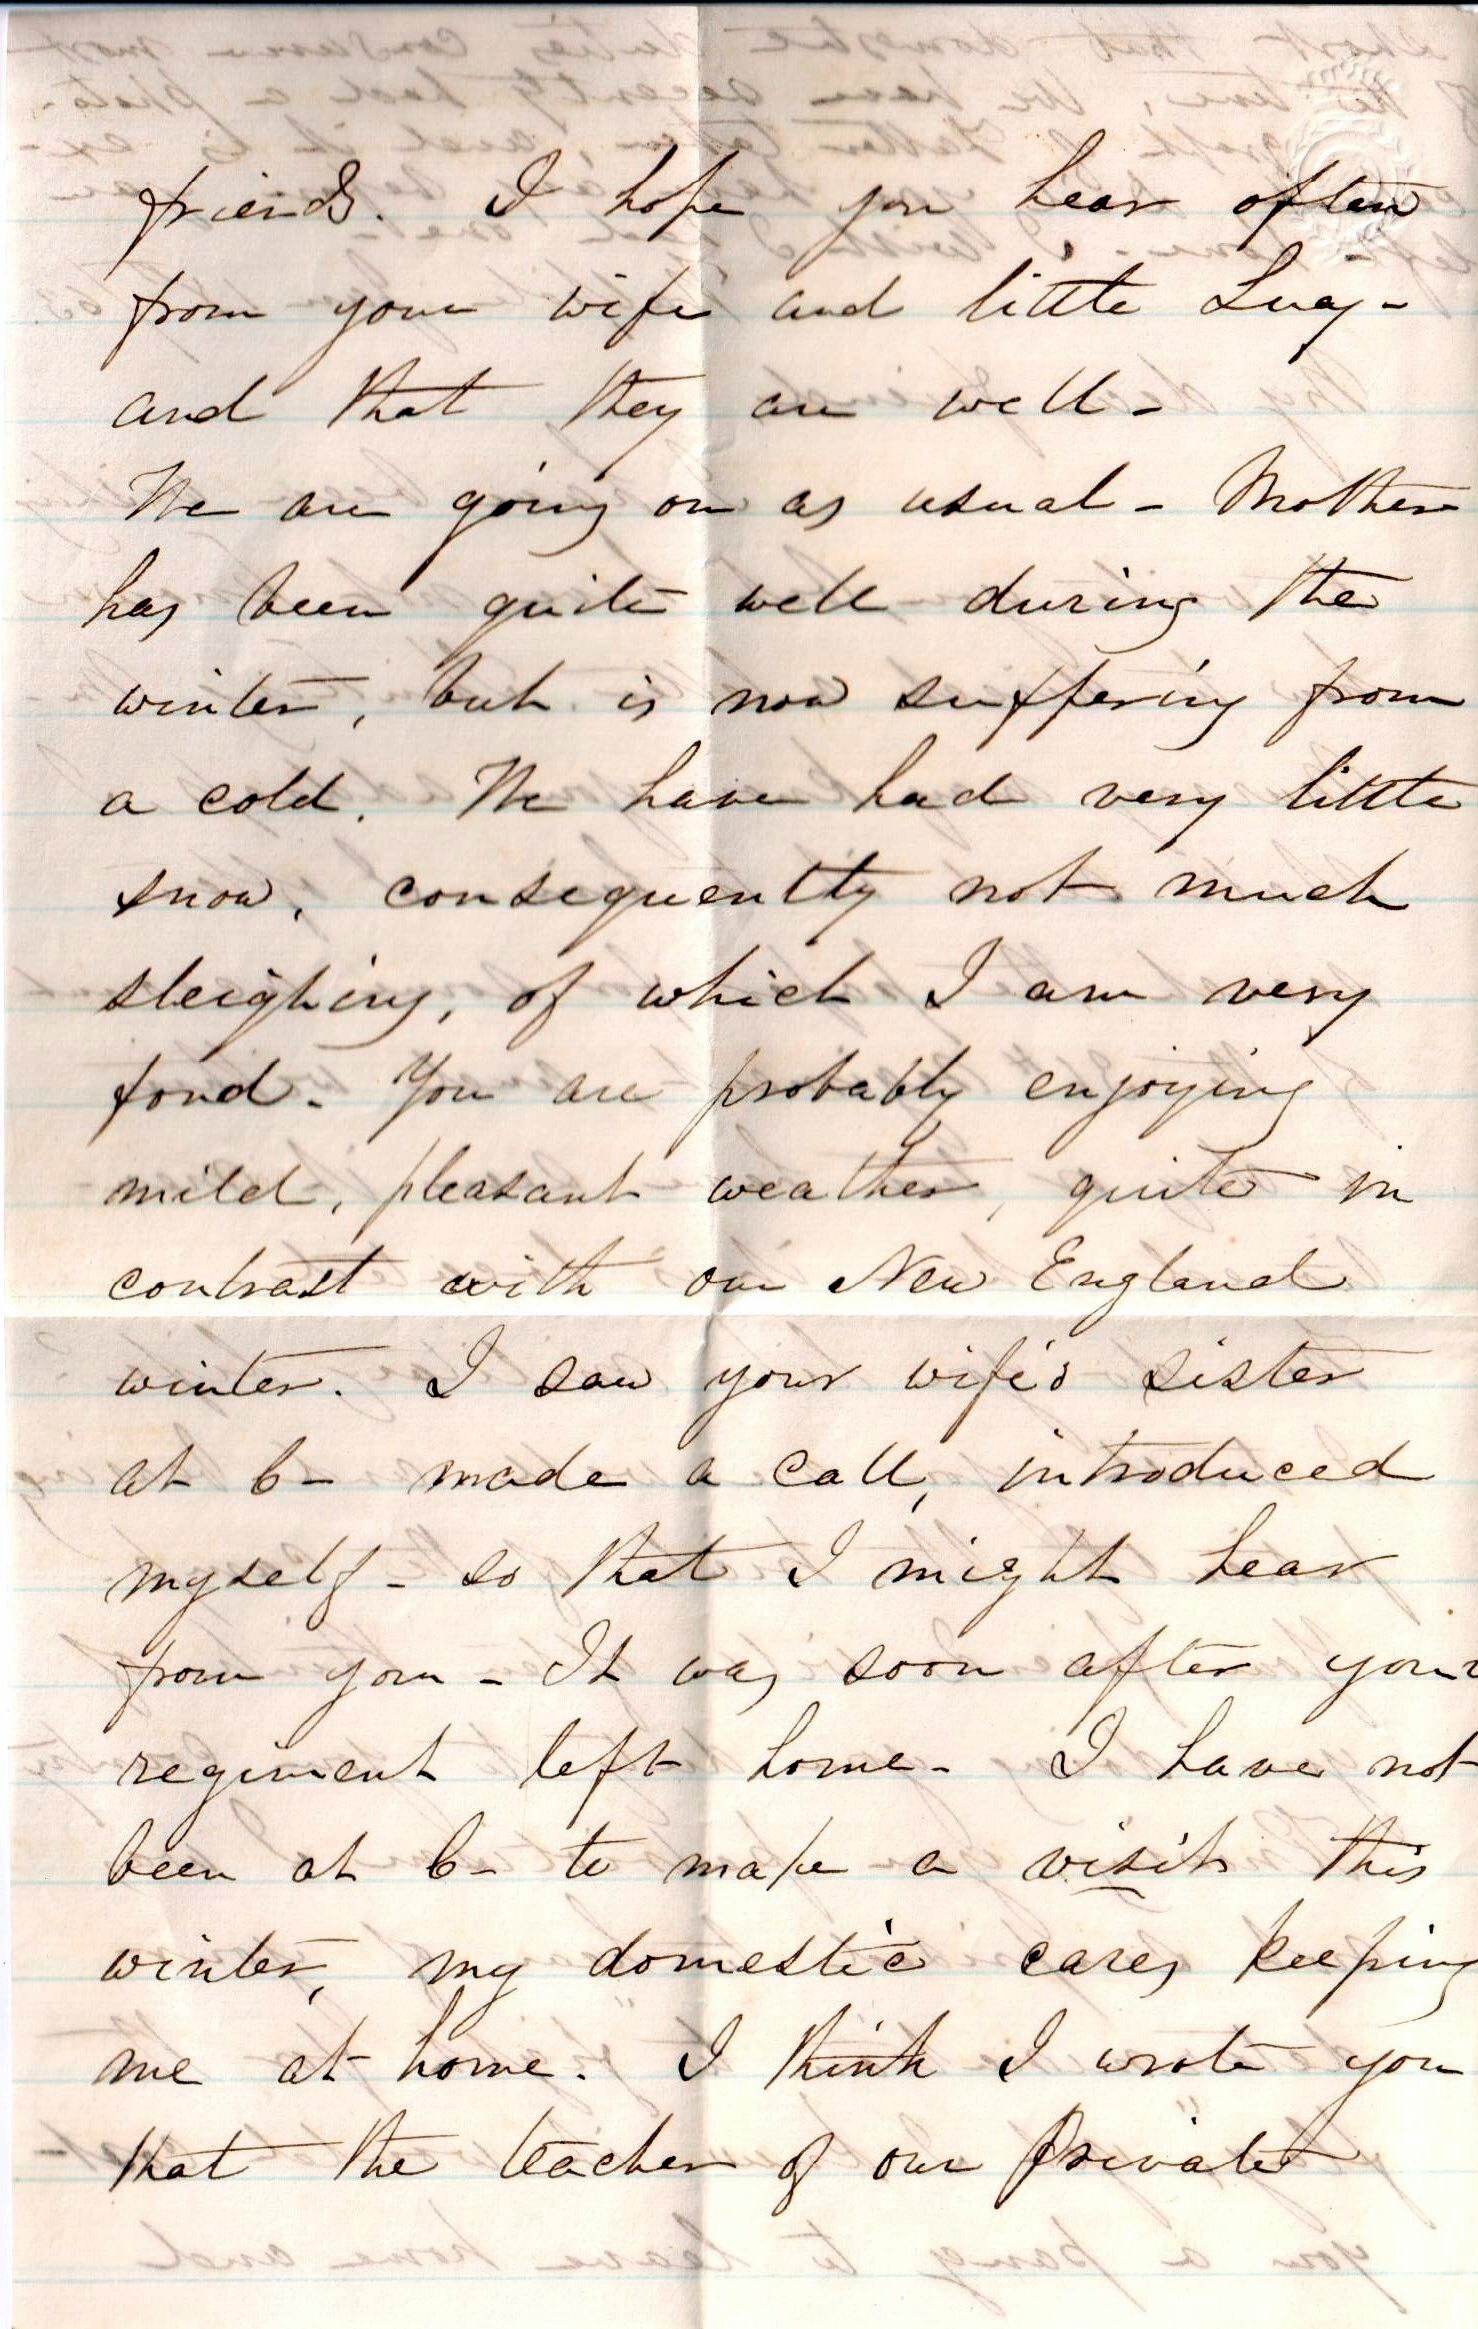 friends. I hope you hear often
from your wife and little Lucy -
and that they are well -
We are going on as usual - Mother
has been quite well during the
winter, but is now suffering from
a cold. We have had very little
snow, consequently not much
sleighing, of which I am very
fond - You are probably enjoying
mild, pleasant weather, quite in
contrast with our New England
winter. I saw your wife's sister
at C - made a call, introduced
myself - so that I might hear
from you - It was soon after your
regiment left home - I have not
been at C - to make a visit this
winter, my domestic cares keeping
me at home. I think I wrote you
that the teacher of our private